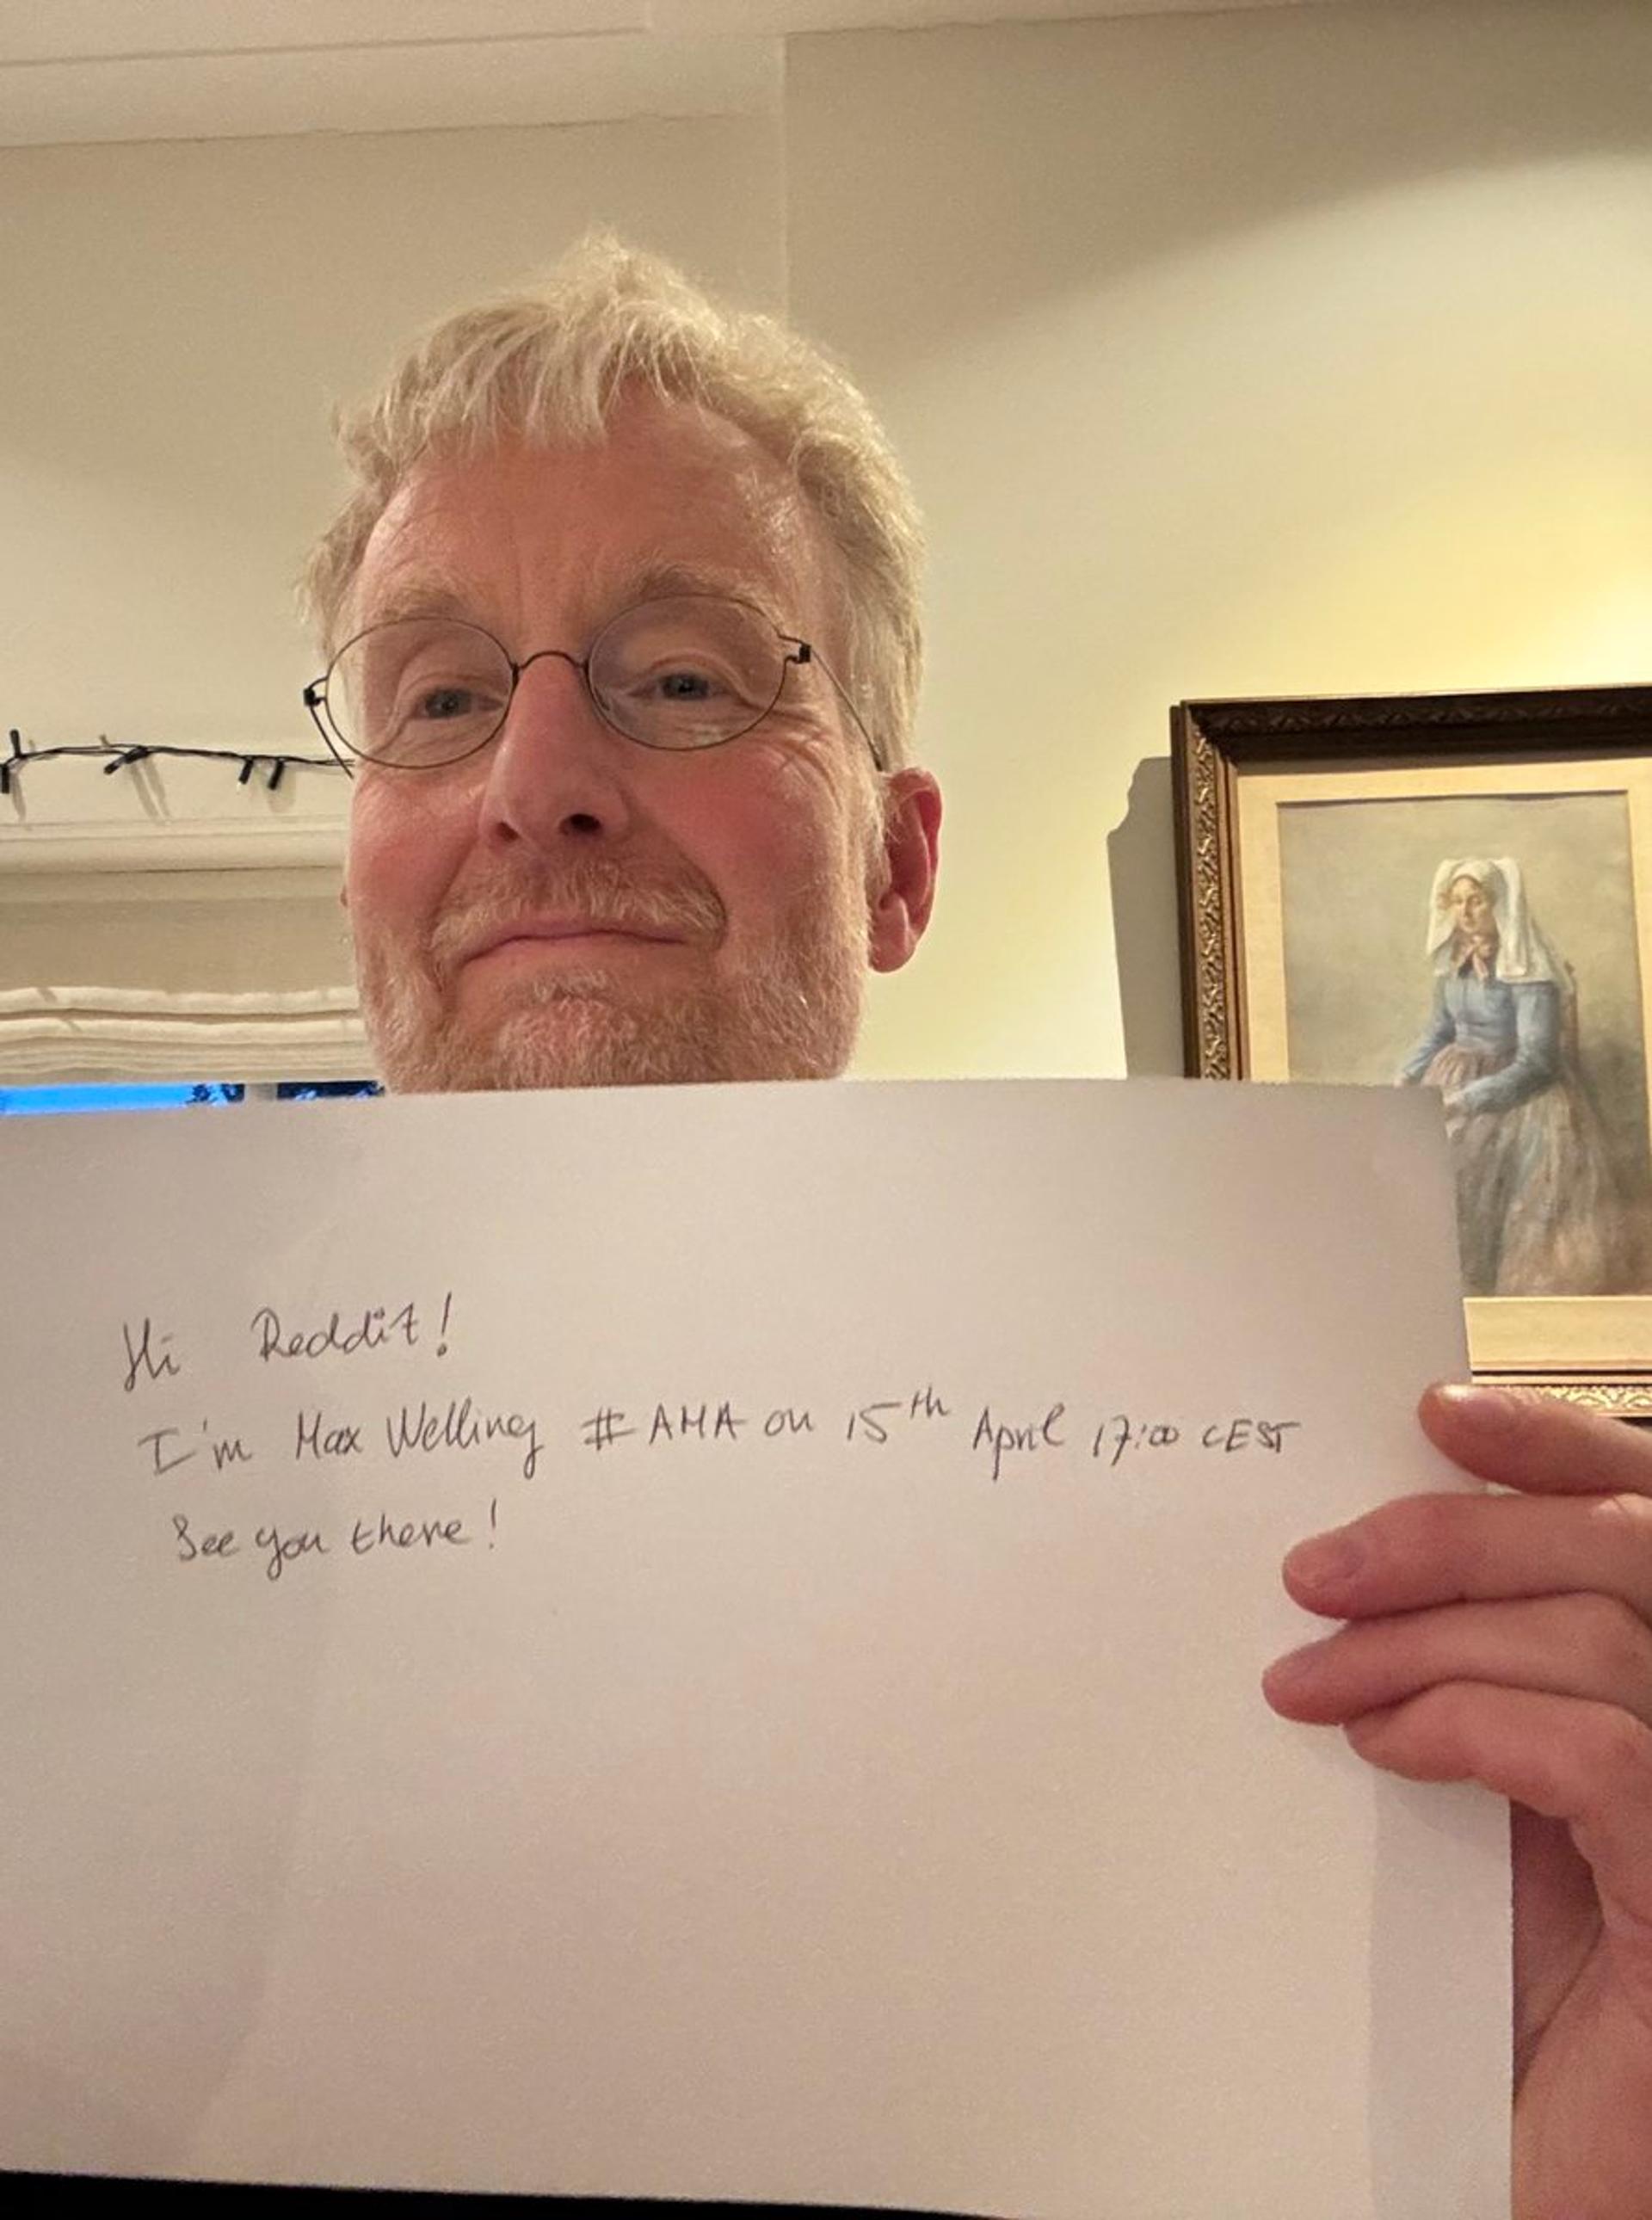 Hi Reddit!
I'm Max Welling #AMA on 15th April 17:00 CEST
See you there!